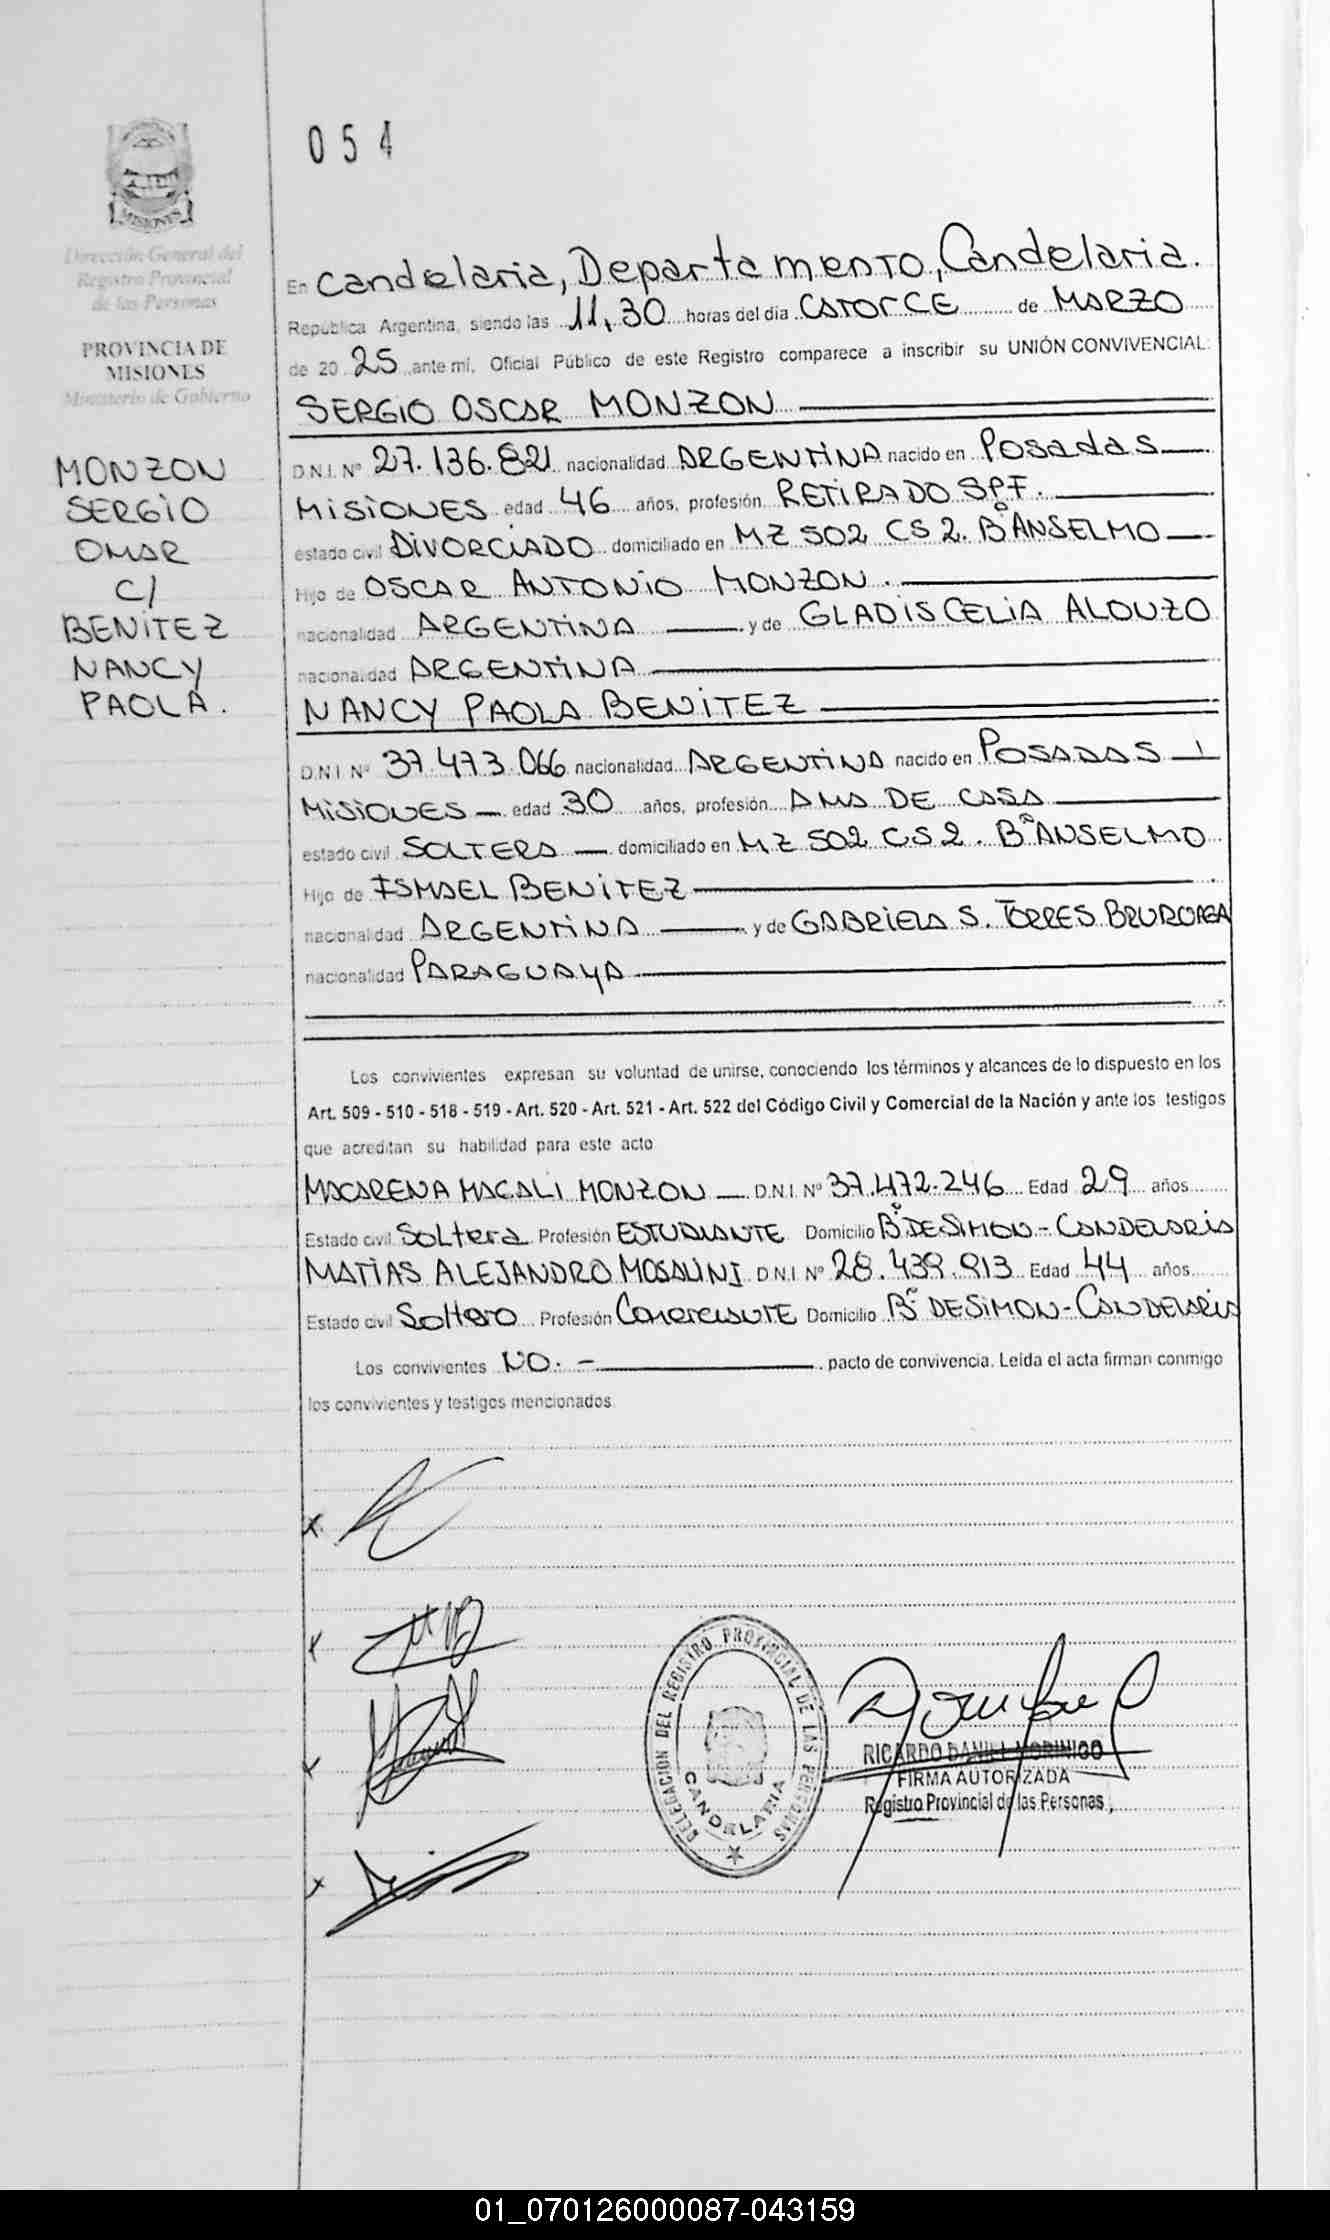 054
MISIONES
Dirección General del
Registro Provincial
de las Personas
PROVINCIA DE
MISIONES
Ministerio de Gobierno
MONZON
SERGIO
OMAR
C/
BENITEZ
NANCY
PAOLA.
En Candelaria, Departamento, Candelaria.
República Argentina, siendo las 11,30 horas del día CATORCE de MARZO
de 2025 ante mi, Oficial Público de este Registro comparece a inscribir su UNIÓN CONVIVENCIAL:
SERGIO OSCAR MONZON
D.N.I. Nº 27.136.821 nacionalidad ARGENTINA nacido en Posadas
MISIONES edad 46 años, profesión RETIRADO SPF.
estado civil DIVORCIADO domiciliado en MZ 502 CS 2. Bº ANSELMO
Hijo de OSCAR ANTONIO MONZON.
nacionalidad ARGENTINA y de GLADIS CELIA ALONZO
nacionalidad ARGENTINA
NANCY PAOLA BENITEZ
D.N.I Nº 37.473.066 nacionalidad ARGENTINA nacido en POSADAS
MISIONES edad 30 años, profesión AMA DE CASA
estado civil SOLTERA domiciliado en MZ 502 CS 2. Bº ANSELMO
Hijo de ISMAEL BENITEZ
nacionalidad ARGENTINA y de GABRIELA S. TORRES
nacionalidad PARAGUAYA
Los convivientes expresan su voluntad de unirse, conociendo los términos y alcances de lo dispuesto en los
Art. 509 - 510 - 518 - 519 - Art. 520 - Art. 521 - Art. 522 del Código Civil y Comercial de la Nación y ante los testigos
que acreditan su habilidad para este acto
MACARENA MAGALI MONZON D.N.I. Nº 37.472.246 Edad 29 años
Estado civil Soltera Profesión ESTUDIANTE Domicilio Bº DE SIMON - CANDELARIA
MATIAS ALEJANDRO MOSALINI D.N.I Nº 28.439.913 Edad 44 años
Estado civil Soltero Profesión Comerciante Domicilio Bº DE SIMON - CANDELARIA
Los convivientes NO.- pacto de convivencia. Leída el acta firman conmigo
los convivientes y testigos mencionados
DELEGACION DEL REGISTRO PROVINCIAL DE LAS PERSONAS
CANDELARIA
RICARDO DANIEL MORINIGO
FIRMA AUTORIZADA
Registro Provincial de las Personas
01_070126000087-043159